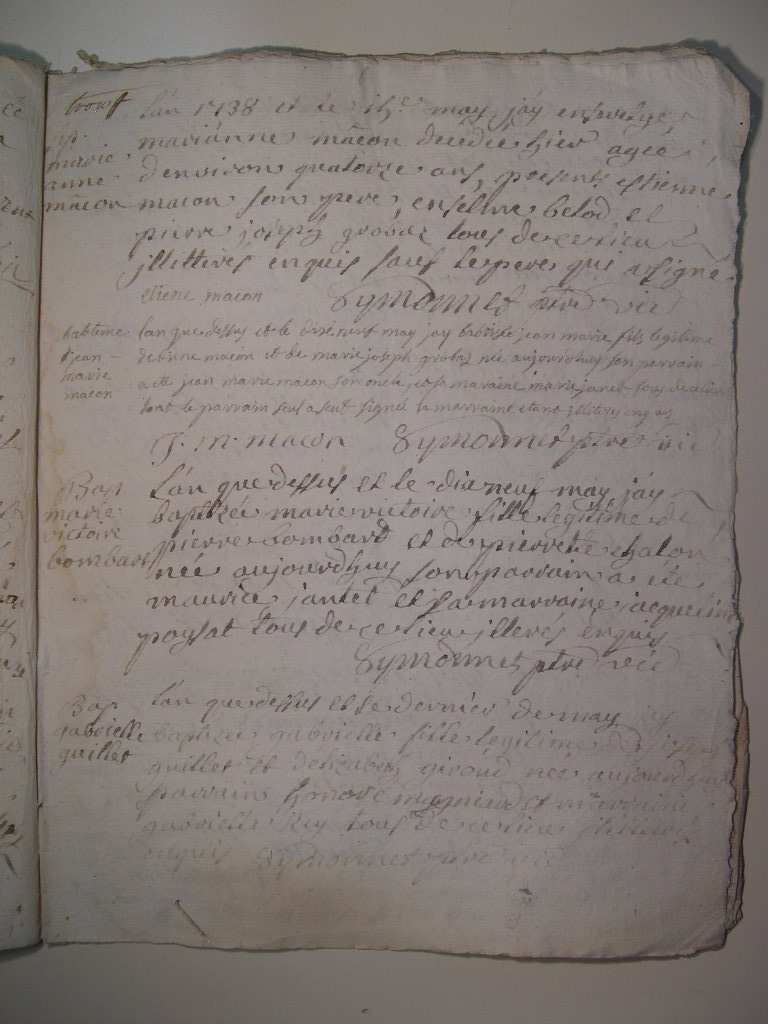 l'an 1738 et le may jáy enseveliè
marie
anne
mãcon
mariánne mãcon decedée hier ageé
d'environ quatorze ans, present estienne
macon son pere, enselme belod et
pierre joseph grobaz tous de ce lieu
jllittirés enquis sauf le pere qui a signé
etiene macon Symonnet ptre vic
batême
jean
marie
macon
lan que dessus et le dixneuf may jay batisé jean marie fils legitime
et de marie joseph grobaz né aujourdhuy son parrain
a eté jean marie macon son oncle marraine marie janet tous de ce lieu
le parrain seul a signé la marraine etant enquis
J. m. macon Symonnet ptre vic
Bap
marie
victoire
bombard
lán que dessus et le dixneuf may jay
baptizée marie victoire fille legitime de
pierre bombard et de pierrette chalon
neé aujourdhuy son parrain a eté
maurice jantet et sa marraine jacquemine
paysat tous de ce lieu jllerés enquis
Symonnet ptre vic
Bap
gabrielle
guillet
lán que dessus et le dernier de may jay
baptizée gabrielle fille legitime de joseph
guillet et delizabeth giroud neé aujourdhuy
parrain et marraine
gabrielle Rey tous de ce lieu jllitirés
enquis Symonnet ptre vic